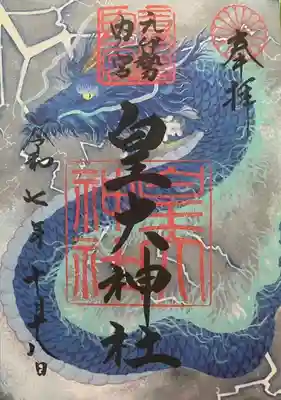 奉拝
元伊勢
内宮
皇大神社
皇大
神社
令和七年十月十八日